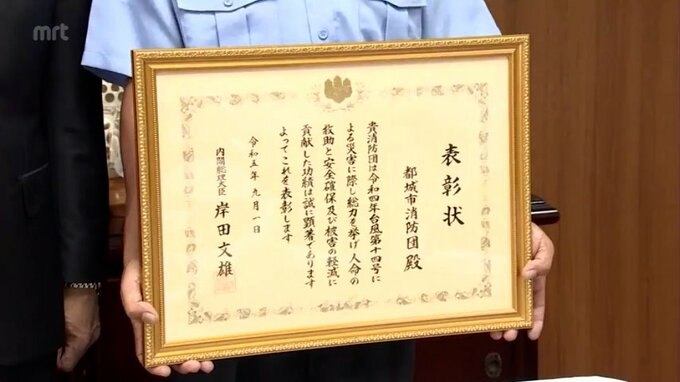 mrt
表彰状
都城市消防団殿
貴消防団は令和四年台風第十四号に
よる災害に際し総力を挙げ人命の
救助と安全確保及び被害の軽減に
貢献した功績は誠に顕著であります
よってこれを表彰します
令和五年九月一日
内閣総理大臣 岸田文雄